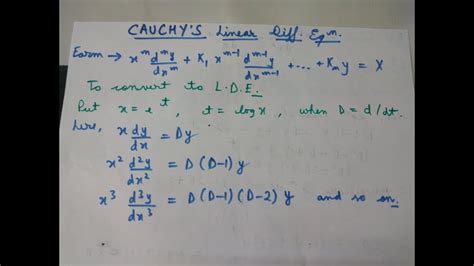 CAUCHY'S Linear Diff. Eqn.
Form → x^m d^m y/dx^m + K₁ x^(m-1) d^(m-1) y/dx^(m-1) + ... + Km y = X
To convert to L.D.E.
Put x = e^t , t = log x , when D = d/dt.
Here, x dy/dx = Dy
x² d²y/dx² = D(D-1)y
x³ d³y/dx³ = D(D-1)(D-2) y and so on.